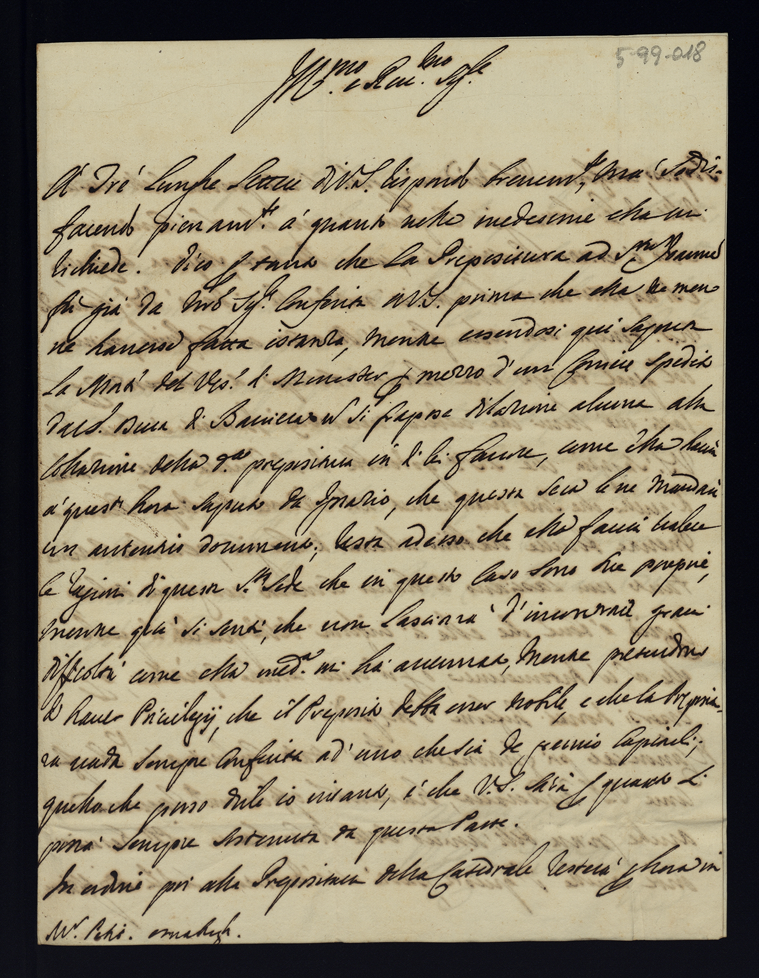 5-99-018
Ill.mo e Rev.mo Sig.re
A' trè lunghe lettere di V.S. rispondo brevem.te, mà sodis-
facendo pienam.te à quanto nelle medesime ella mi
richiede. Dico p tanto che la Prepositura ad S.
fù già da Nro Sig.re conferita à V.S. prima che ella ne
ne havesse fatta istanza, mentre essendosi quì saputa
la Morte del Vesc.o di Munster p mezzo d'un Corriere spedito
dal S. Duca di Baviera nō si frapose dilatione alcuna alla
collatione della d.a prepositura in di lei favore, come ella haverà
à quest'hora saputo da Ignazio, che questa sera le ne manderà
un autentico documento; resta adesso che ella facci valere
le ragioni di questa S.ta Sede che in questo caso sono sue proprie,
mentre già si sente, che non lascierà d'incontrare gravi
difficoltà come ella med.a mi hà accennato, mentre pretendono
d'haver Privilegij, che il Preposito debba esser nobile, e che la Prepositu-
ra vada sempre conferita ad uno che sia de gremio Capituli;
quello che posso dirle io intanto, è che V.S. sarà p quanto si
potrà sempre sostenuta da questa Parte.
In ordine poi alla Prepositura della Catedrale resterà p hora in